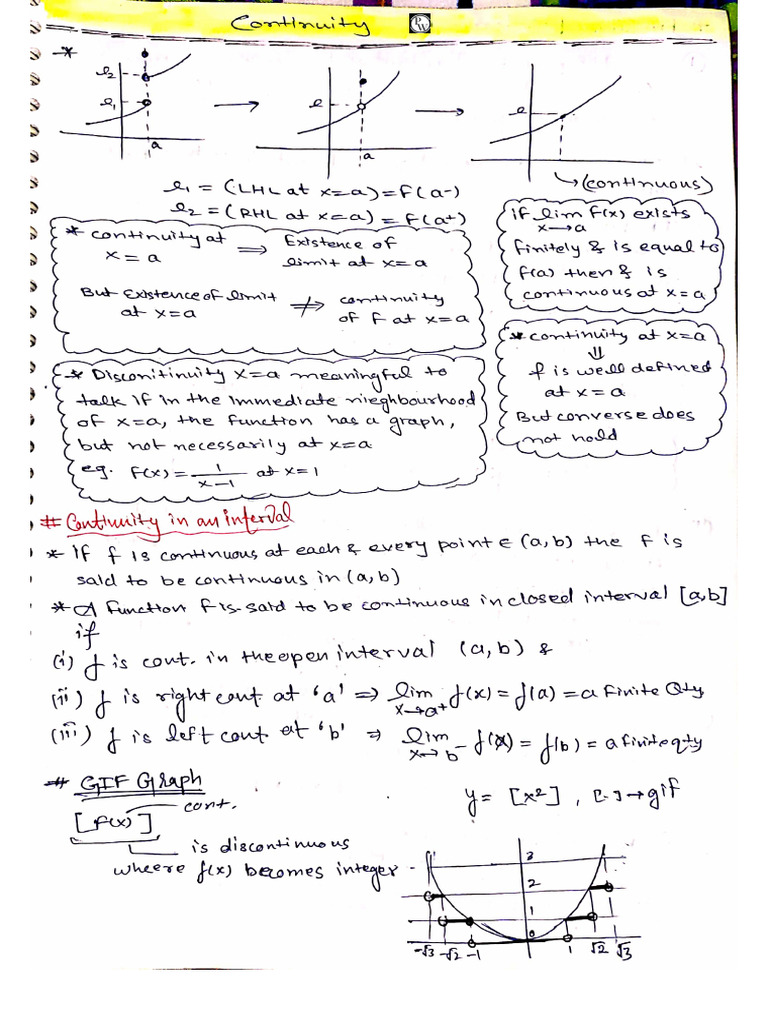 Continuity
*
l2
l1
a
l
a
l
→ (continuous)
l1 = (LHL at x=a) = F(a-)
l2 = (RHL at x=a) = F(a+)
* continuity at x=a ⟹ Existence of limit at x=a
But Existence of limit at x=a ⇏ continuity of F at x=a
if lim x→a F(x) exists
finitely & is equal to
f(a) then f is
continuous at x=a
* continuity at x=a
⇓
f is well defined
at x=a
But converse does
not hold
* Disconitinuity x=a meaningful to
talk if in the immediate nieghbourhood
of x=a, the function has a graph,
but not necessarily at x=a
eg. F(x) = 1/(x-1) at x=1
# Continuity in an interval
* If f is continuous at each & every point ∈ (a,b) the F is
said to be continuous in (a,b)
* A function F is said to be continuous in closed interval [a,b]
if
(i) f is cont. in the open interval (a,b) &
(ii) f is right cont at 'a' ⇒ lim x→a+ f(x) = f(a) = a finite Qty
(iii) f is left cont at 'b' ⇒ lim x→b- f(x) = f(b) = a finite qty
# GIF Graph
[F(x)] cont.
is discontinuous
wheere f(x) becomes integer
y = [x²], [.]→gif
3
2
1
0
-√3 -√2 -1 1 √2 √3